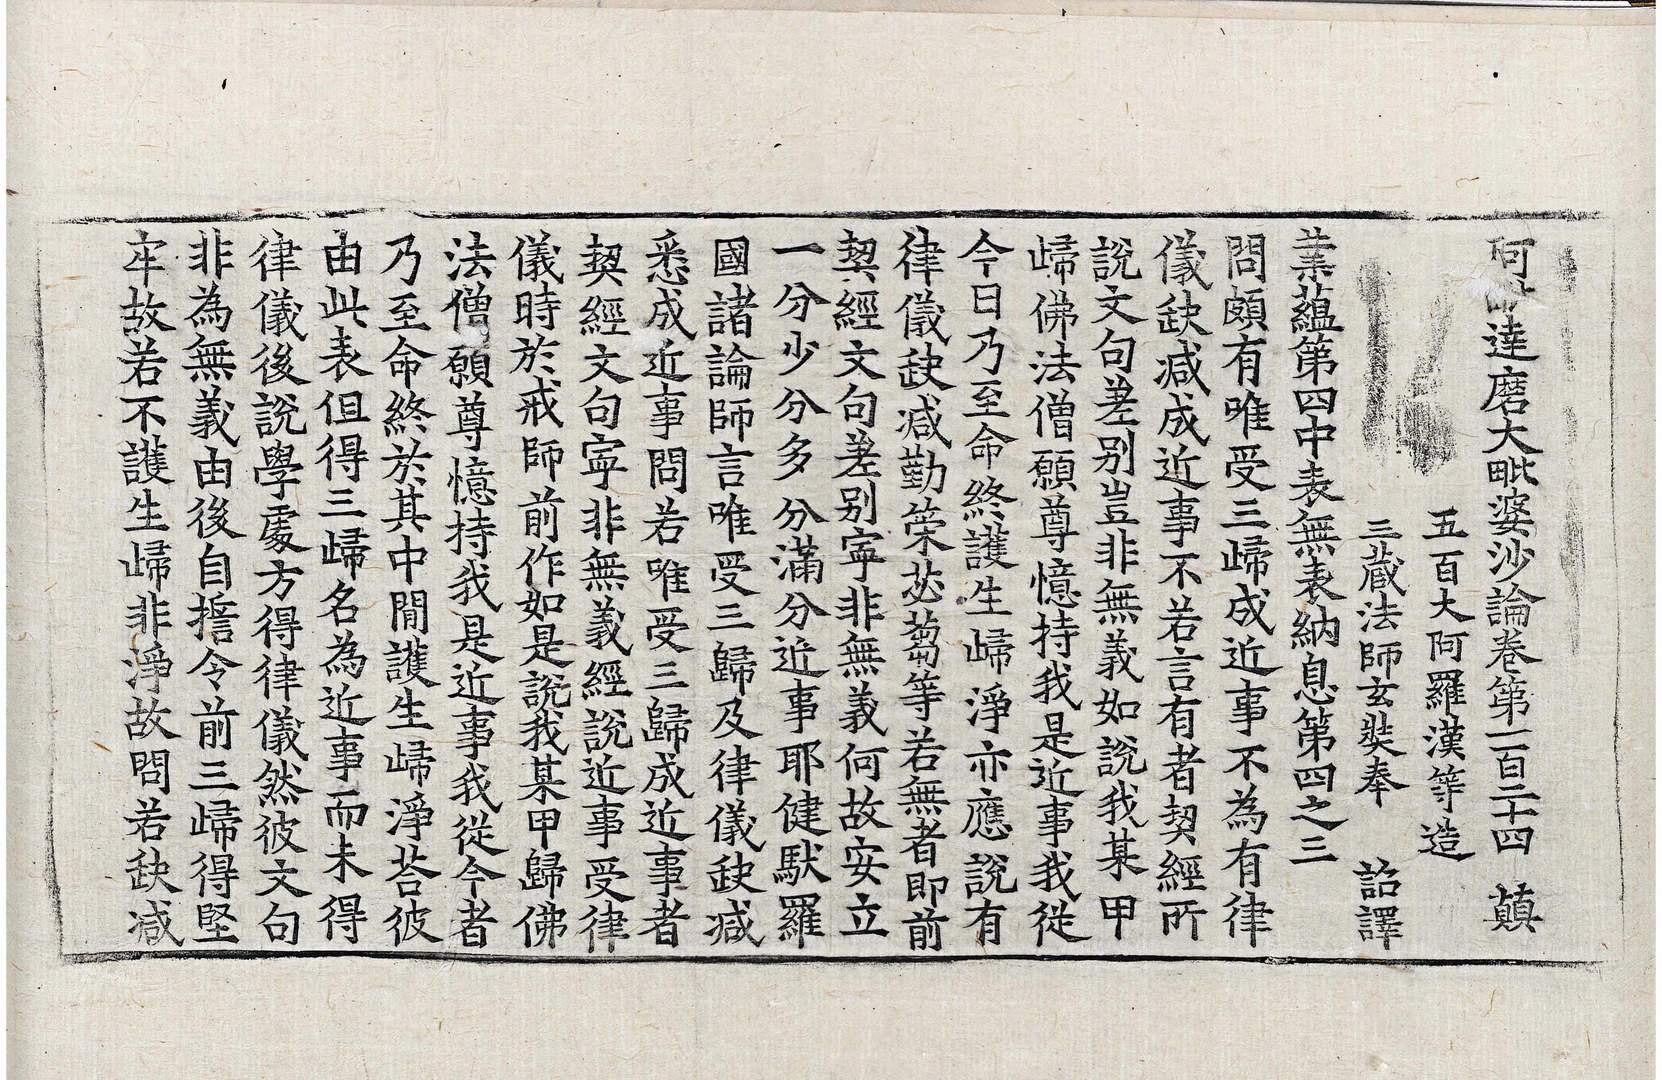 阿毗達磨大毗婆沙論卷第一百二十四 顛
五百大阿羅漢等造
三藏法師玄奘奉 詔譯
業蘊第四中表無表納息第四之三
問頗有唯受三歸成近事不為有律
儀缺減成近事不若言有者契經所
說文句差別豈非無義如說我某甲
歸佛法僧願尊憶持我是近事我從
今日乃至命終護生歸淨亦應說有
律儀缺減勤策苾芻等若無者即前
契經文句差別寧非無義何故安立
一分少分多分滿分近事耶健馱羅
國諸論師言唯受三歸及律儀缺減
悉成近事問若唯受三歸成近事者
契經文句寧非無義經說近事受律
儀時於戒師前作如是說我某甲歸佛
法僧願尊憶持我是近事我從今者
乃至命終於其中閒護生歸淨荅彼
由此表但得三歸名為近事而未得
律儀後說學處方得律儀然彼文句
非為無義由後自擔令前三歸得堅
牢故若不護生歸非淨故問若缺減